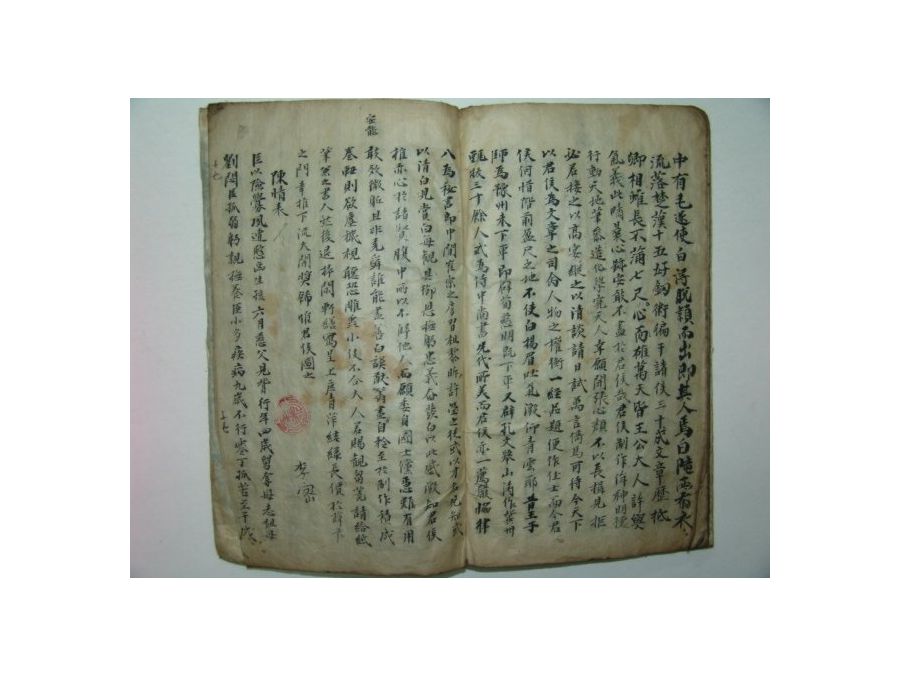 中有毛遂使白得脫穎而出即其人焉白隴西布衣
流落楚漢十五好劍術徧干諸侯三十成文章歷抵
卿相雖長不滿七尺心而雄萬夫皆王公大人許與
氣義此疇曩心跡安敢不盡於君侯哉君侯制作侔神明德
行動天地筆參造化學究天人幸願開張心顔不以長揖見拒
必若接之以高宴縱之以清談請日試萬言倚馬可待今天下
以君侯為文章之司命人物之權衡一經品題便作佳士而今君
侯何惜階前盈尺之地不使白揚眉吐氣激昂青雲耶昔王子
師為豫州未下車即辟荀慈明既下車又辟孔文擧山濤作冀州
甄拔三十餘人或為侍中尚書先代所美而君侯亦一薦嚴協律
入為秘書郎中間崔宗之房習祖黎昕許瑩之徒或以才名見知或
以清白見賞白每觀其御恩撫躬忠義奮發白以此感激知君侯
推赤心於諸賢腹中所以不歸他人而願委身國士儻急難有用
安能
敢效微軀且非堯舜誰能盡善白謨猷籌畫自矜至於制作積成
卷軸則欲塵穢視聽恐雕蟲小伎不合大人若賜觀芻蕘請給紙
筆兼之書人然後退掃閑軒繕寫呈上庶青萍結綠長價於薛卞
之門幸推下流大開獎飾惟君侯圖之
陳情表 李密
臣以險釁夙遭愍凶生孩六月慈父見背行年四歲舅奪母志祖母
劉閔臣孤弱躬親撫養臣少多疾病九歲不行零丁孤苦至于成